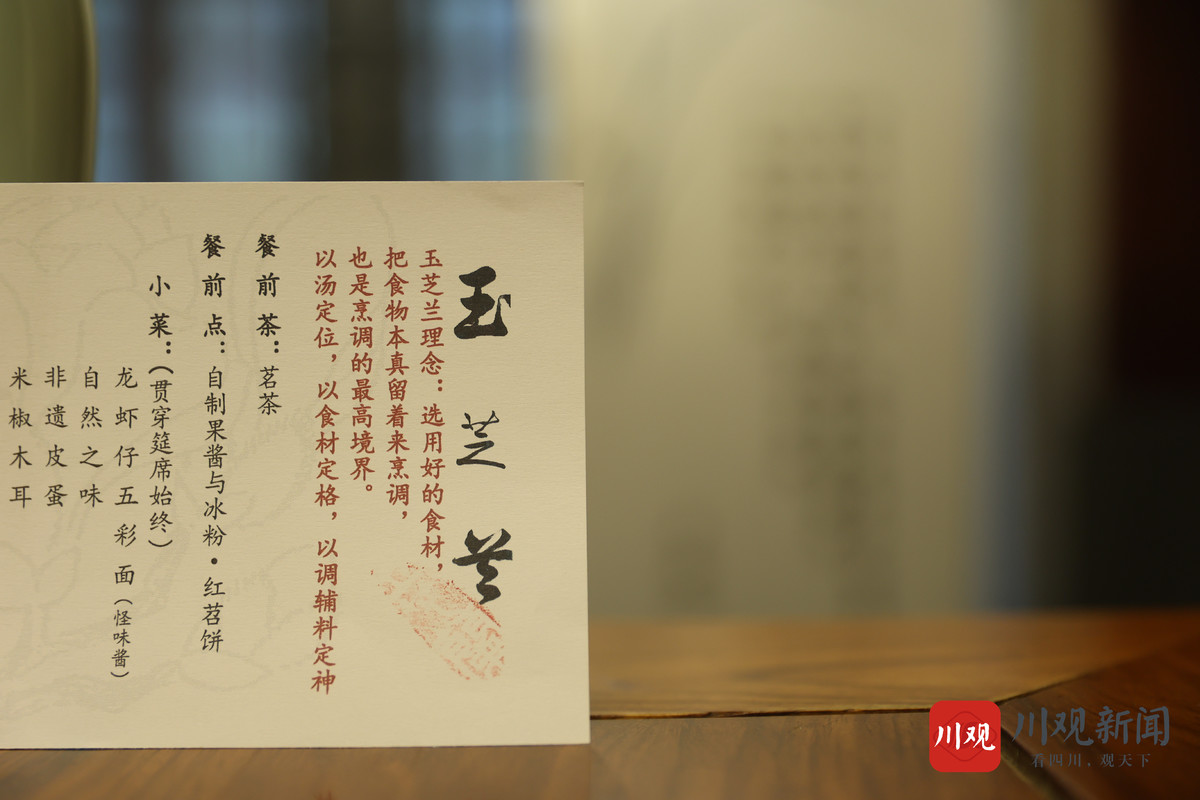 玉芝兰
玉芝兰理念：选用好的食材，
把食物本真留着来烹调，
也是烹调的最高境界。
以汤定位，以食材定格，以调辅料定神
餐前茶：茗茶
餐前点：自制果酱与冰粉•红苕饼
小菜：（贯穿筵席始终）
龙虾仔五彩面（怪味酱）
自然之味
非遗皮蛋
米椒木耳
川观
川观新闻
看四川，观天下